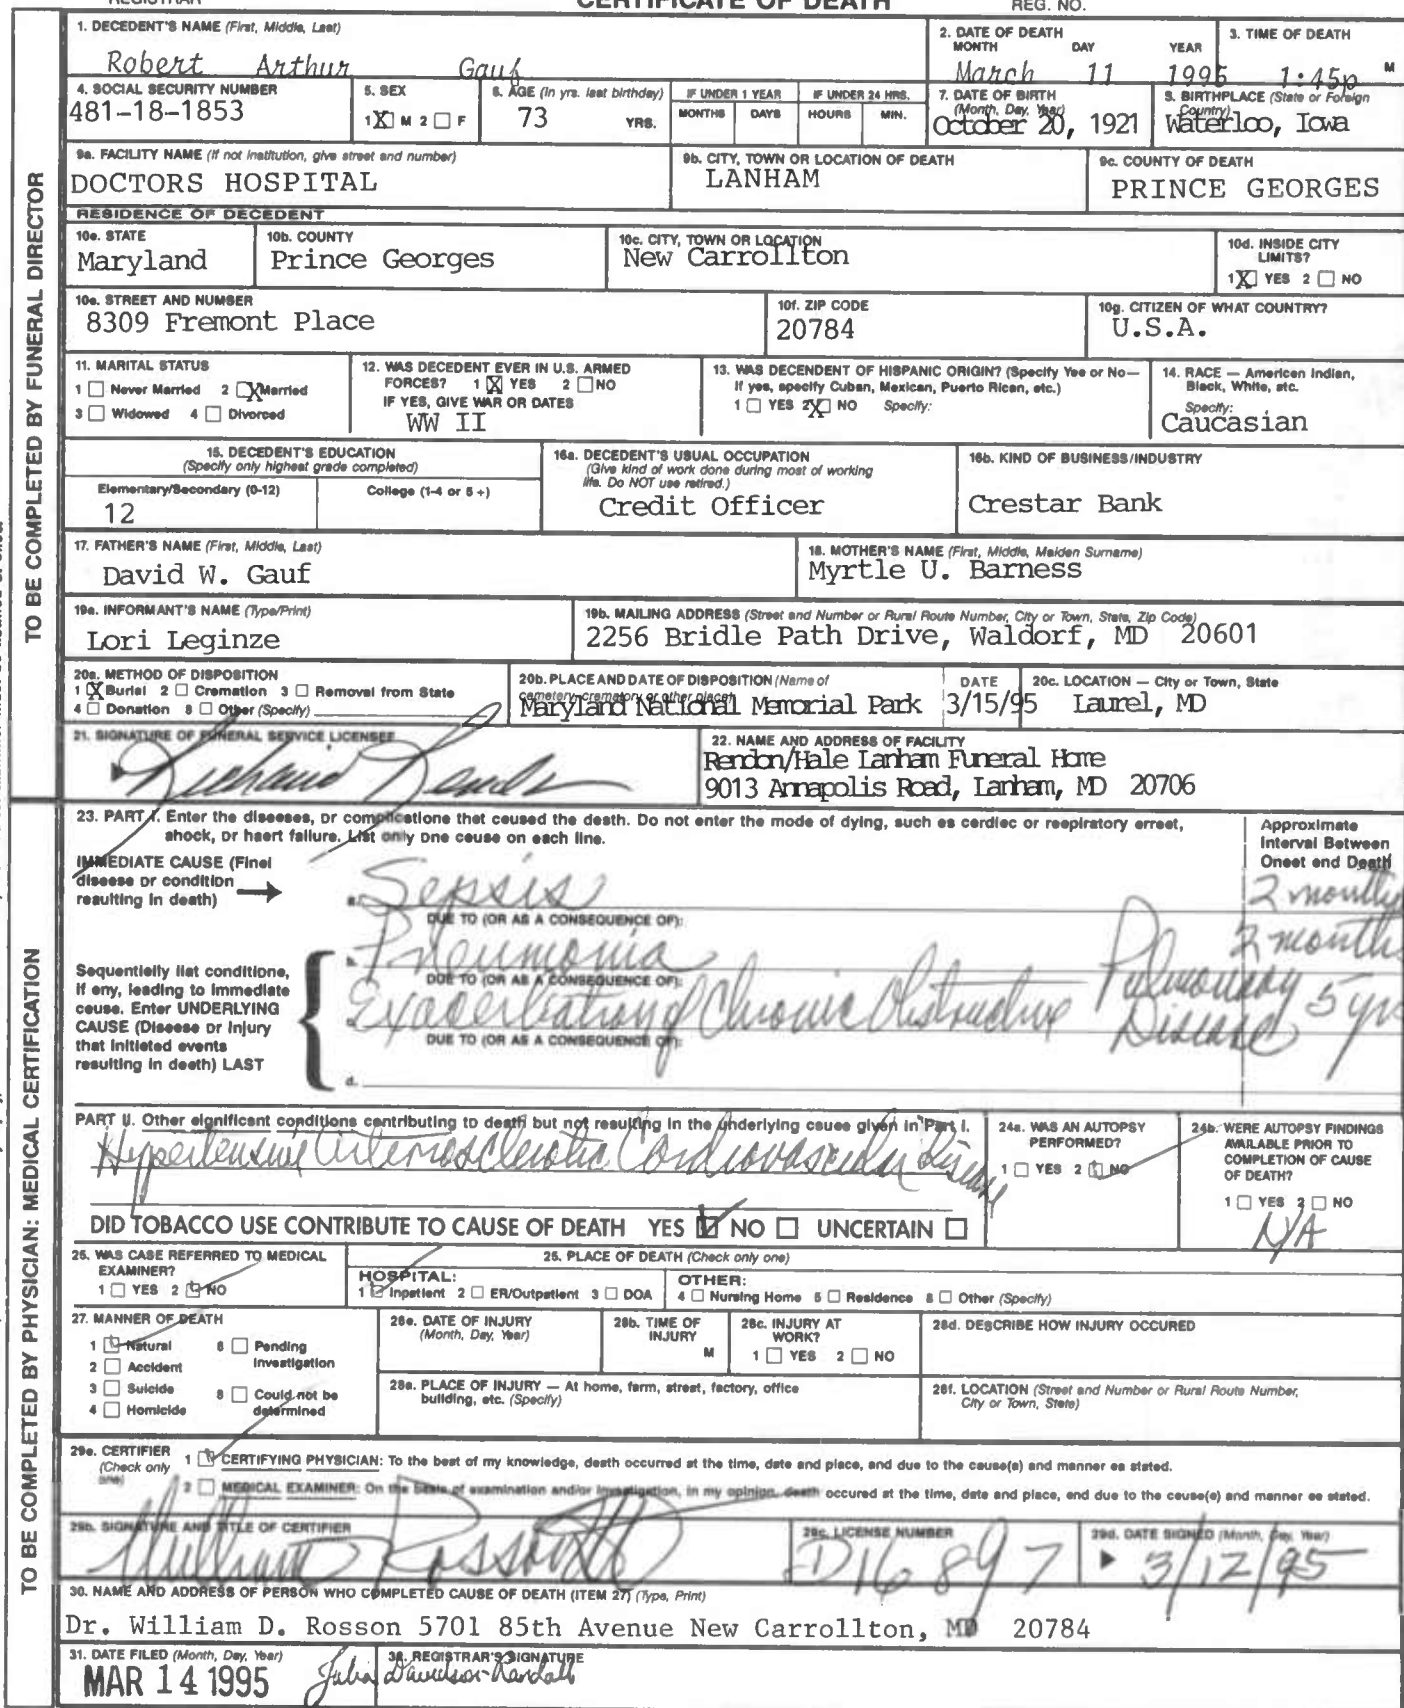 REGISTRAR CERTIFICATE OF DEATH REG. NO.
1. DECEDENT'S NAME (First, Middle, Last)
Robert Arthur Gauf
2. DATE OF DEATH
MONTH DAY YEAR
March 11 1995
3. TIME OF DEATH
1:45p M
4. SOCIAL SECURITY NUMBER
481-18-1853
5. SEX
1 X M 2 ☐ F
6. AGE (In yrs. last birthday)
73 YRS.
IF UNDER 1 YEAR
MONTHS DAYS
IF UNDER 24 HRS.
HOURS MIN.
7. DATE OF BIRTH
(Month, Day, Year)
October 20, 1921
8. BIRTHPLACE (State or Foreign
Country)
Waterloo, Iowa
9a. FACILITY NAME (If not institution, give street and number)
DOCTORS HOSPITAL
9b. CITY, TOWN OR LOCATION OF DEATH
LANHAM
9c. COUNTY OF DEATH
PRINCE GEORGES
RESIDENCE OF DECEDENT
10a. STATE
Maryland
10b. COUNTY
Prince Georges
10c. CITY, TOWN OR LOCATION
New Carrollton
10d. INSIDE CITY
LIMITS?
1 X YES 2 ☐ NO
10e. STREET AND NUMBER
8309 Fremont Place
10f. ZIP CODE
20784
10g. CITIZEN OF WHAT COUNTRY?
U.S.A.
11. MARITAL STATUS
1 ☐ Never Married 2 X Married
3 ☐ Widowed 4 ☐ Divorced
12. WAS DECEDENT EVER IN U.S. ARMED
FORCES? 1 X YES 2 ☐ NO
IF YES, GIVE WAR OR DATES
WW II
13. WAS DECENDENT OF HISPANIC ORIGIN? (Specify Yes or No—
If yes, specify Cuban, Mexican, Puerto Rican, etc.)
1 ☐ YES 2 X NO Specify:
14. RACE — American Indian,
Black, White, etc.
Specify:
Caucasian
15. DECEDENT'S EDUCATION
(Specify only highest grade completed)
Elementary/Secondary (0-12)
12
College (1-4 or 5+)
16a. DECEDENT'S USUAL OCCUPATION
(Give kind of work done during most of working
life. Do NOT use retired.)
Credit Officer
16b. KIND OF BUSINESS/INDUSTRY
Crestar Bank
17. FATHER'S NAME (First, Middle, Last)
David W. Gauf
18. MOTHER'S NAME (First, Middle, Maiden Surname)
Myrtle U. Barness
19a. INFORMANT'S NAME (Type/Print)
Lori Leginze
19b. MAILING ADDRESS (Street and Number or Rural Route Number, City or Town, State, Zip Code)
2256 Bridle Path Drive, Waldorf, MD 20601
20a. METHOD OF DISPOSITION
1 X Burial 2 ☐ Cremation 3 ☐ Removal from State
4 ☐ Donation 8 ☐ Other (Specify)
20b. PLACE AND DATE OF DISPOSITION (Name of
cemetery, crematory or other place)
Maryland National Memorial Park
DATE
3/15/95
20c. LOCATION — City or Town, State
Laurel, MD
21. SIGNATURE OF FUNERAL SERVICE LICENSEE
22. NAME AND ADDRESS OF FACILITY
Rendon/Hale Lanham Funeral Home
9013 Annapolis Road, Lanham, MD 20706
TO BE COMPLETED BY FUNERAL DIRECTOR
23. PART I. Enter the diseases, or complications that caused the death. Do not enter the mode of dying, such as cardiac or respiratory arrest,
shock, or heart failure. List only one cause on each line.
Approximate
Interval Between
Onset and Death
IMMEDIATE CAUSE (Final
disease or condition
resulting in death)
a. Sepsis 2 months
DUE TO (OR AS A CONSEQUENCE OF):
b. Pneumonia 2 months
DUE TO (OR AS A CONSEQUENCE OF):
c. Exacerbation of Chronic Obstructive Pulmonary Disease 5 yrs
DUE TO (OR AS A CONSEQUENCE OF):
d.
Sequentially list conditions,
if any, leading to immediate
cause. Enter UNDERLYING
CAUSE (Disease or Injury
that initiated events
resulting in death) LAST
PART II. Other significant conditions contributing to death but not resulting in the underlying cause given in Part I.
Hypertensive Arteriosclerotic Cardiovascular Disease
DID TOBACCO USE CONTRIBUTE TO CAUSE OF DEATH YES ☑ NO ☐ UNCERTAIN ☐
24a. WAS AN AUTOPSY
PERFORMED?
1 ☐ YES 2 ☑ NO
24b. WERE AUTOPSY FINDINGS
AVAILABLE PRIOR TO
COMPLETION OF CAUSE
OF DEATH?
1 ☐ YES 2 ☐ NO
N/A
25. WAS CASE REFERRED TO MEDICAL
EXAMINER?
1 ☐ YES 2 ☑ NO
26. PLACE OF DEATH (Check only one)
HOSPITAL:
1 ☑ Inpatient 2 ☐ ER/Outpatient 3 ☐ DOA
OTHER:
4 ☐ Nursing Home 5 ☐ Residence 8 ☐ Other (Specify)
27. MANNER OF DEATH
1 ☑ Natural 6 ☐ Pending
Investigation
2 ☐ Accident
3 ☐ Suicide 8 ☐ Could not be
determined
4 ☐ Homicide
28a. DATE OF INJURY
(Month, Day, Year)
28b. TIME OF
INJURY
M
28c. INJURY AT
WORK?
1 ☐ YES 2 ☐ NO
28d. DESCRIBE HOW INJURY OCCURED
28e. PLACE OF INJURY — At home, farm, street, factory, office
building, etc. (Specify)
28f. LOCATION (Street and Number or Rural Route Number,
City or Town, State)
29a. CERTIFIER
(Check only
one)
1 ☑ CERTIFYING PHYSICIAN: To the best of my knowledge, death occurred at the time, date and place, and due to the cause(s) and manner as stated.
2 ☐ MEDICAL EXAMINER: On the basis of examination and/or investigation, in my opinion, death occured at the time, date and place, and due to the cause(s) and manner as stated.
29b. SIGNATURE AND TITLE OF CERTIFIER
William Rosson
29c. LICENSE NUMBER
D16897
29d. DATE SIGNED (Month, Day, Year)
3/12/95
30. NAME AND ADDRESS OF PERSON WHO COMPLETED CAUSE OF DEATH (ITEM 27) (Type, Print)
Dr. William D. Rosson 5701 85th Avenue New Carrollton, MD 20784
31. DATE FILED (Month, Day, Year)
MAR 14 1995
32. REGISTRAR'S SIGNATURE
Julia Davidson-Randall
TO BE COMPLETED BY PHYSICIAN: MEDICAL CERTIFICATION